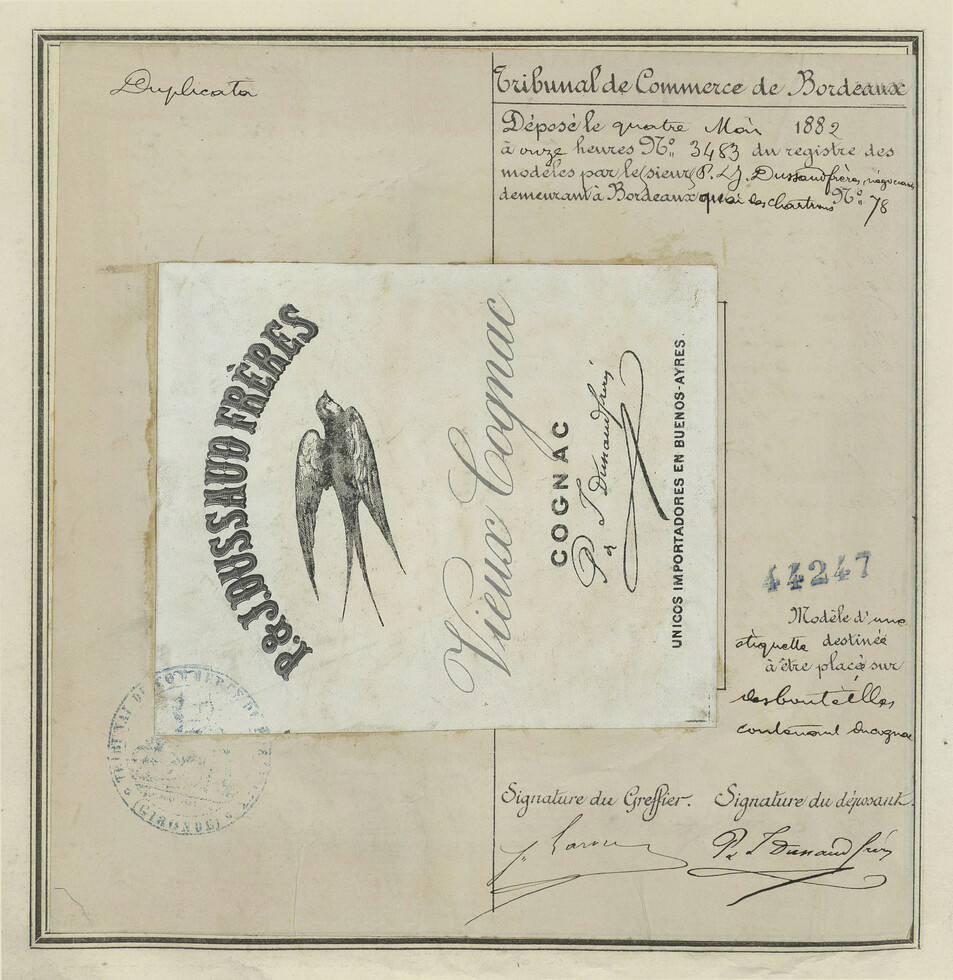 Duplicata
Tribunal de Commerce de Bordeaux
Déposé le quatre Mai 1882
à onze heures N° 3483 du registre des
modèles par le (sieur) P. & J. Dussaud frères, négociants
demeurant à Bordeaux quai des chartrons N° 78
P. & J. DUSSAUD FRÈRES
Vieux Cognac
COGNAC
P & J Dussaud frères
UNICOS IMPORTADORES EN BUENOS-AYRES.
44247
Modèle d'une
étiquette destinée
à être placée sur
des bouteilles
contenant du cognac
TRIBUNAL DE COMMERCE DE
(GIRONDE)
Signature du Greffier. Signature du déposant.
P & J Dussaud frères